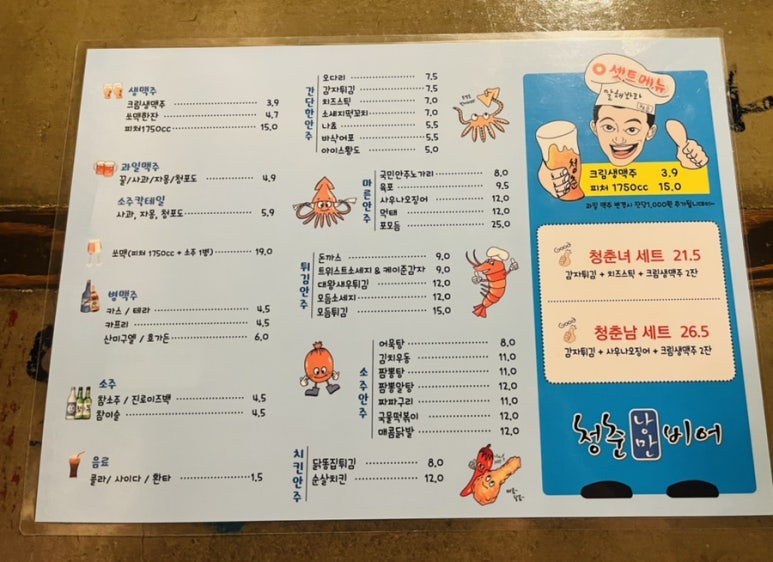 생맥주
크림생맥주 3.9
쏘맥한잔 4.7
피쳐1750cc 15.0
과일맥주
꿀/사과/자몽/청포도 4.9
소주칵테일
사과, 자몽, 청포도 5.9
쏘맥(피쳐 1750cc + 소주 1병) 19.0
병맥주
카스 / 테라 4.5
카프리 4.5
산미구엘 / 호가든 6.0
소주
참소주 / 진로이즈백 4.5
참이슬 4.5
음료
콜라/ 사이다 / 환타 1.5
간단한안주
오다리 7.5
감자튀김 7.5
치즈스틱 7.0
소세지떡꼬치 7.0
나쵸 5.5
바삭어포 5.5
아이스황도 5.0
마른안주
국민안주노가리 8.0
육포 9.5
사우나오징어 12.0
먹태 12.0
포모듬 25.0
튀김안주
돈까스 9.0
트위스트소세지 & 케이준감자 9.0
대왕새우튀김 12.0
모듬소세지 12.0
모듬튀김 15.0
소주안주
어묵탕 8.0
김치우동 11.0
짬뽕탕 11.0
짬뽕알탕 12.0
짜파구리 11.0
국물떡볶이 12.0
매콤닭발 12.0
치킨안주
닭똥집튀김 8.0
순살치킨 12.0
셋트메뉴
말해바라
청춘
크림생맥주 3.9
피쳐 1750cc 15.0
과일 맥주 변경시 잔당1,000원 추가됩니데이~
Good
청춘녀 세트 21.5
감자튀김 + 치즈스틱 + 크림생맥주 2잔
Good
청춘남 세트 26.5
감자튀김 + 사우나오징어 + 크림생맥주 2잔
청춘 낭만 비어